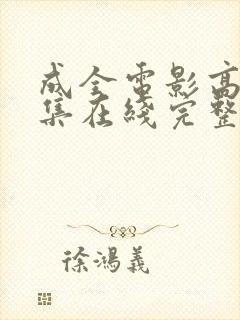 成全電影高
集在綫完整
徐鴻義